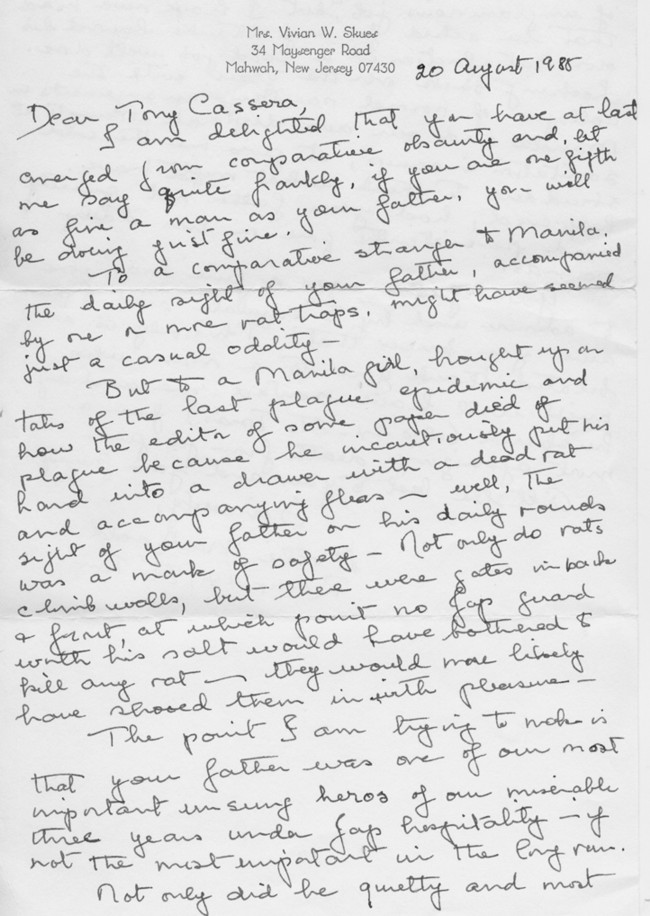 Mrs. Vivian W. Skues
34 Maysenger Road
Mahwah, New Jersey 07430
20 August 1985
Dear Tony Cassera,
I am delighted that you have at last
emerged from comparative obscurity and, let
me say quite frankly, if you are one fifth
as fine a man as your father, you will
be doing just fine.
To a comparative stranger to Manila,
the daily sight of your father, accompanied
by one or more rat traps, might have seemed
just a casual oddity —
But to a Manila girl, brought up on
tales of the last plague epidemic and
how the editor of some paper died of
plague because he incautiously put his
hand into a drawer with a dead rat
and accompanying fleas — well, the
sight of your father on his daily rounds
was a mark of safety — Not only do rats
climb walls, but there were gates in back
& front, at which point no Jap guard
worth his salt would have bothered to
kill any rat — they would more likely
have shooed them in with pleasure —
The point I am trying to make is
that your father was one of our most
important unsung heros of our miserable
three years under Jap hospitality — if
not the most important in the long run.
Not only did he quietly and most